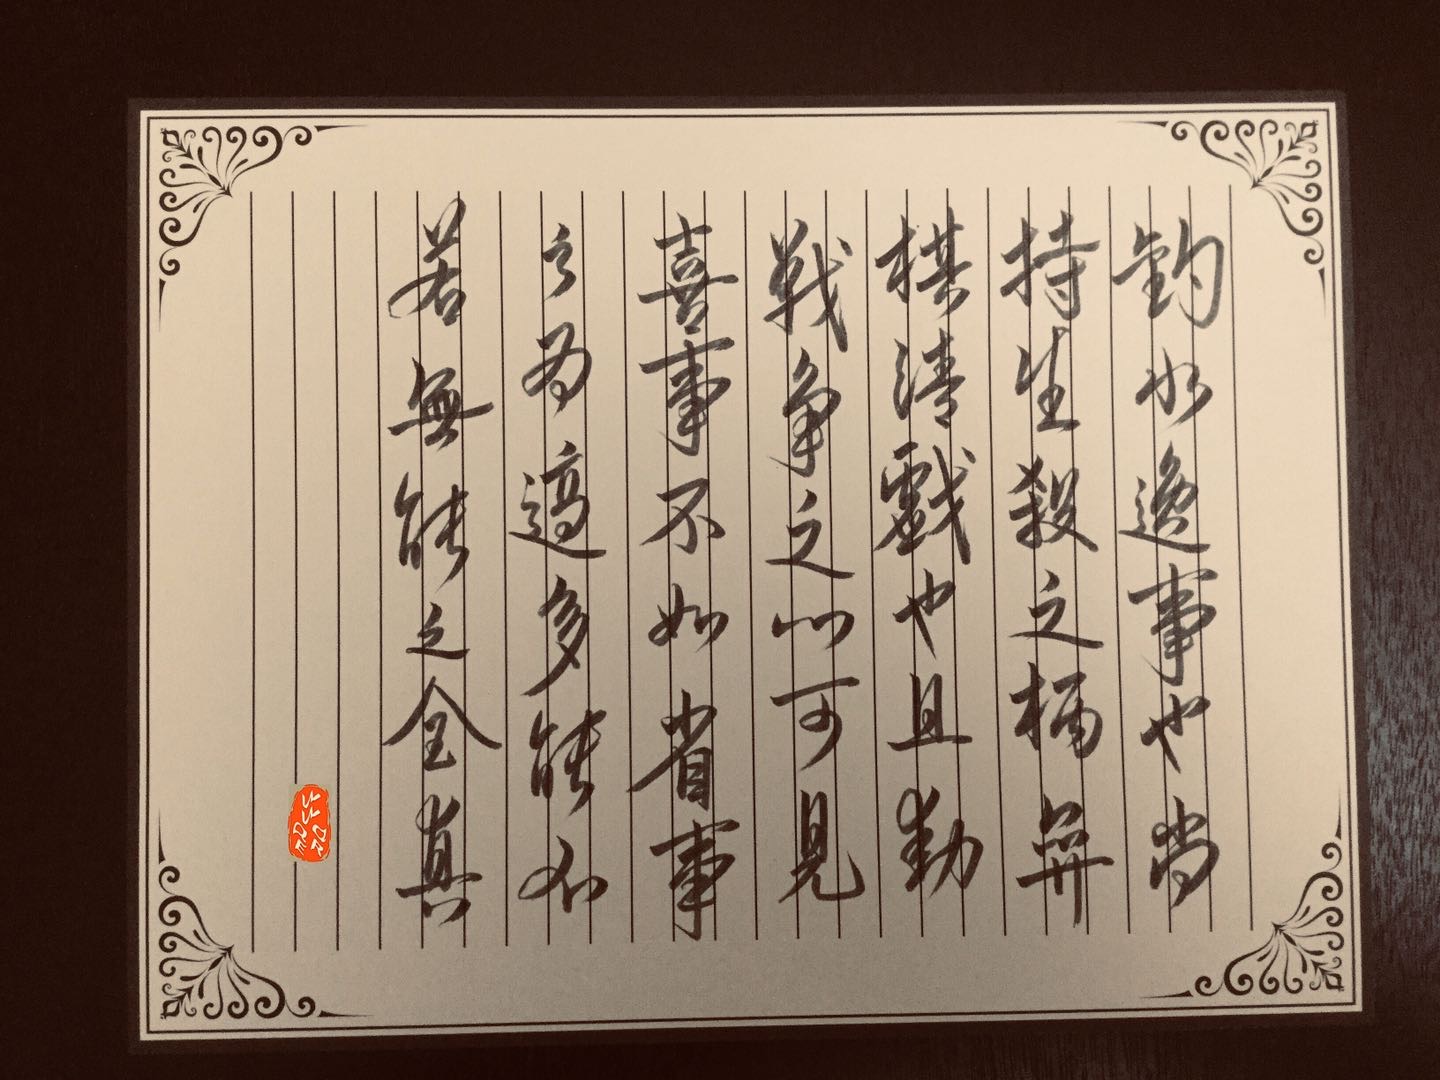 钓水逸事也尚
持生殺之柄弈
棋清戲也且動
戰争之心可見
喜事不如省事
之為適多能不
若無能之全真